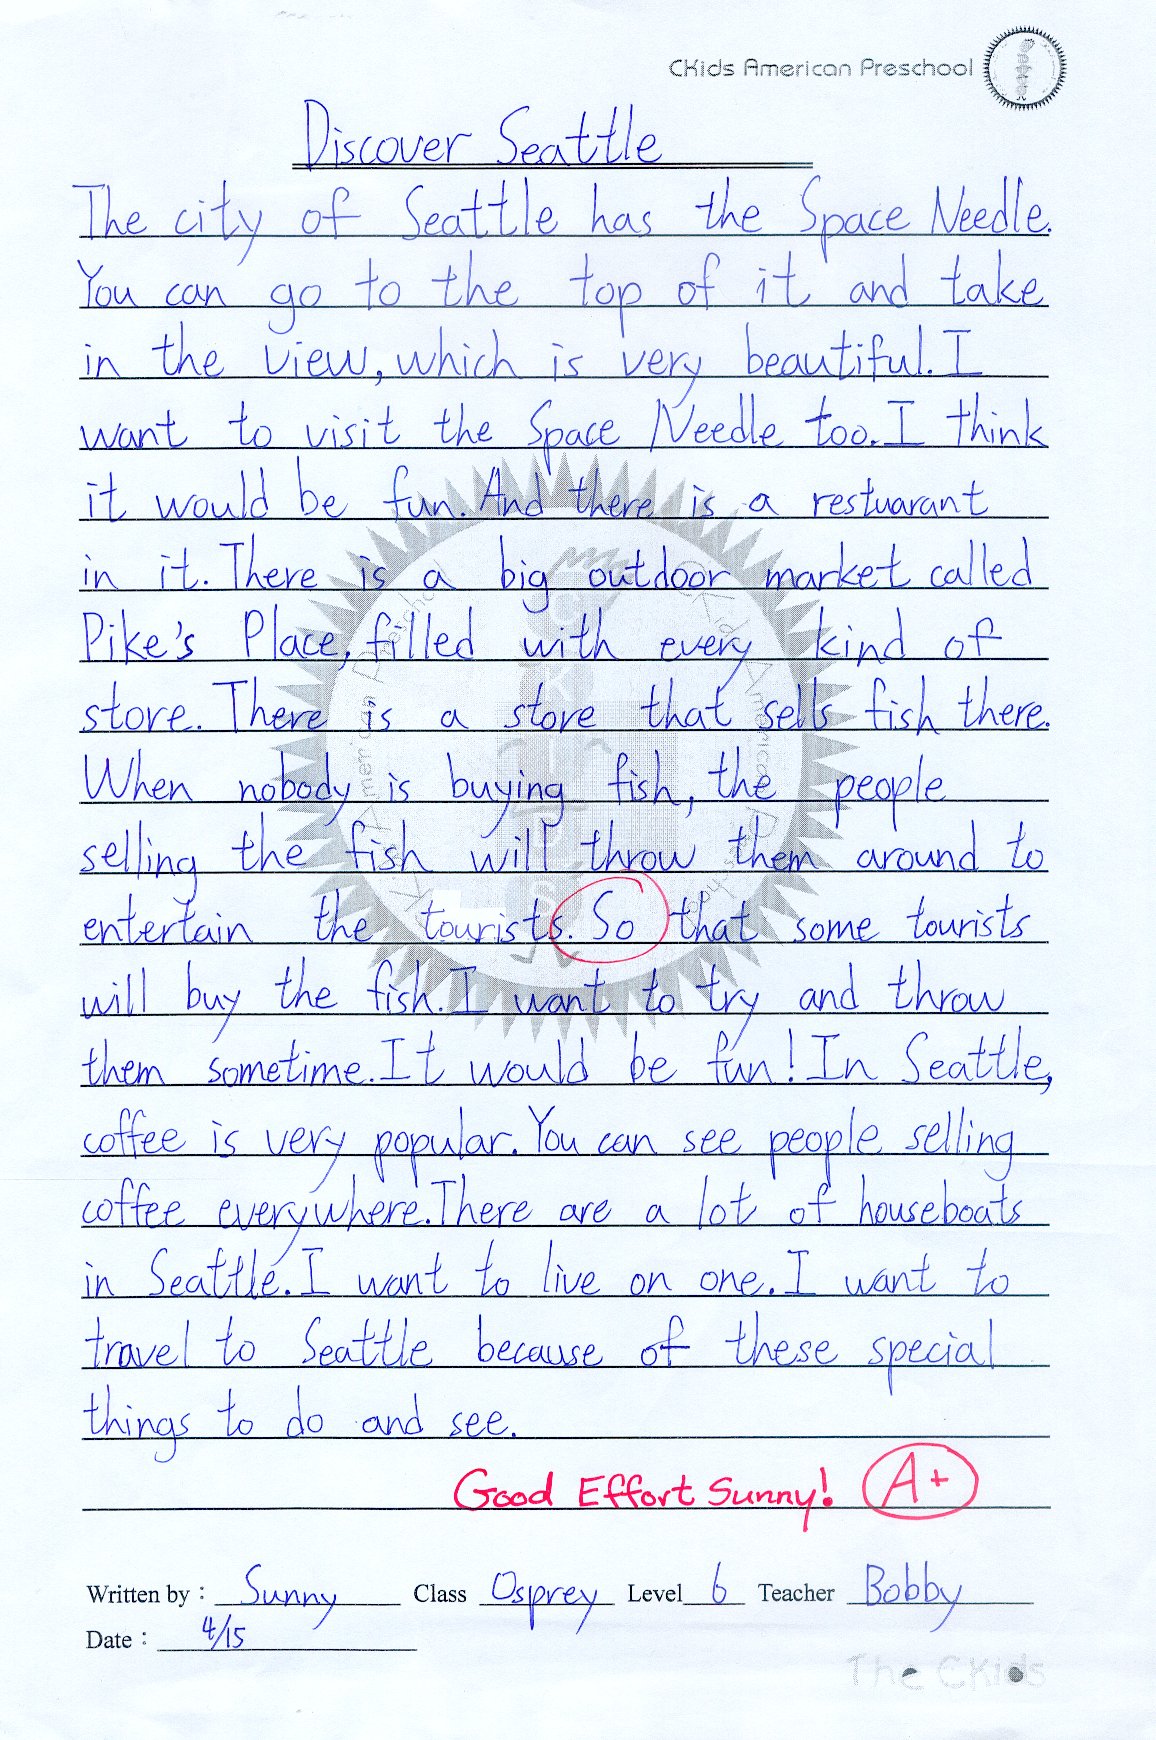 CKids American Preschool
Discover Seattle
The city of Seattle has the Space Needle.
You can go to the top of it and take
in the view, which is very beautiful. I
want to visit the Space Needle too. I think
it would be fun. And there is a restuarant
in it. There is a big outdoor market called
Pike's Place, filled with every kind of
store. There is a store that sells fish there.
When nobody is buying fish, the people
selling the fish will throw them around to
entertain the tourists. So that some tourists
will buy the fish. I want to try and throw
them sometime. It would be fun! In Seattle,
coffee is very popular. You can see people selling
coffee everywhere. There are a lot of houseboats
in Seattle. I want to live on one. I want to
travel to Seattle because of these special
things to do and see.
Good Effort Sunny! A+
Written by : Sunny Class Osprey Level 6 Teacher Bobby
Date : 4/15
The CKids